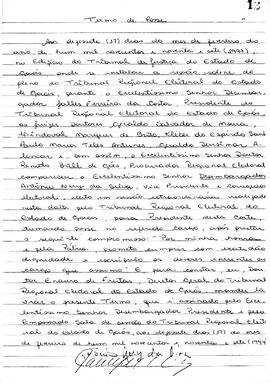 12
Termo de Posse
Aos dezessete (17) dias do mês de fevereiro do
ano de hum mil novecentos e noventa e sete (1997),
no Edifício do Tribunal de Justiça do Estado de
Goiás, onde se instalara a sessão solene do
pleno do Tribunal Regional Eleitoral do Estado
de Goiás, perante o Excelentíssimo Senhor Desembar-
gador Jalles Ferreira da Costa, Presidente do
Tribunal Regional Eleitoral do Estado de Goiás
os juízes Doutores Geraldo Salvador de Moura,
Marques de Brito, Kleber do Espírito Santo
Paulo Maria Teles Antunes, Geraldo A-
lencar, e bem assim, o Excelentíssimo Senhor Doutor
de Góes, Procurador Regional Eleitoral
compareceu o Excelentíssimo Senhor Desembargador
Antônio Nery da Silva, Vice Presidente e Corregedor
eleitoral, eleito em sessão extraordinária realizada
nesta data pelo Tribunal Regional Eleitoral do
Estado de Goiás para Presidente desta Corte,
dando posse no referido cargo, após prestar
o seguinte compromisso: "Por minha honra
e pela Pátria, prometo cumprir com exatidão
dignidade e escrúpulo os deveres inerentes ao
cargo que assumo". E para constar, eu, Dou-
tor Enauro de Freitas, Diretor Geral do Tribunal
Regional Eleitoral do Estado de Goiás, mandei la-
vrar o presente Termo, que é assinado pelo Exce-
lentíssimo Senhor Desembargador Presidente e pelo
Empossado. Sala de sessão do Tribunal Regional Elei-
toral do Estado de Goiás, aos dezessete (17) dias do
mês de fevereiro de hum mil novecentos e noventa e sete (1997)